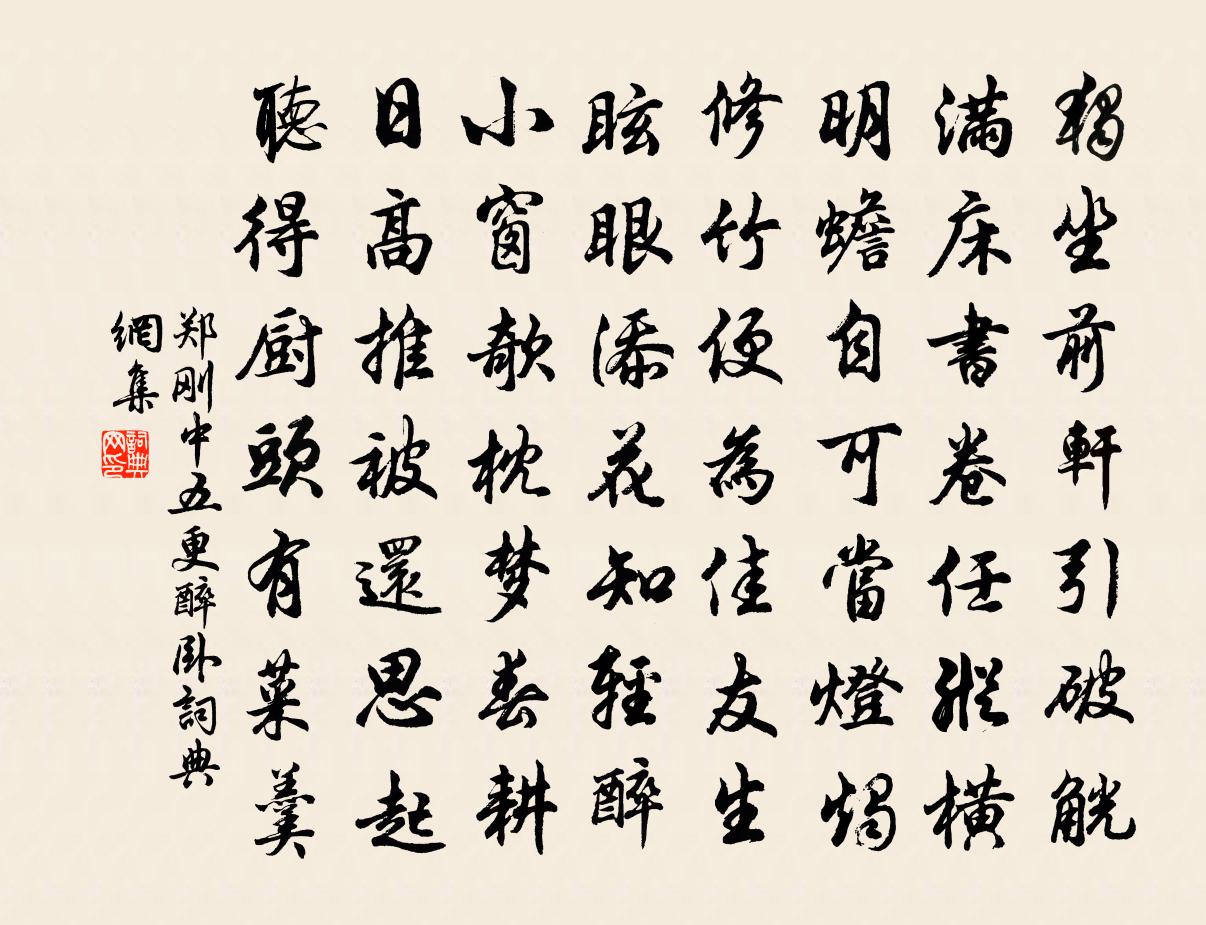 獨坐前軒引破觥
滿床書卷任縱橫
明蟾自可當燈燭
修竹便為佳友生
眩眼添花知輕醉
小窗欹枕梦春耕
日高推被還思起
聽得厨頭有菜羹
郑刚中五更醉卧詞典
網集
詞典
网印